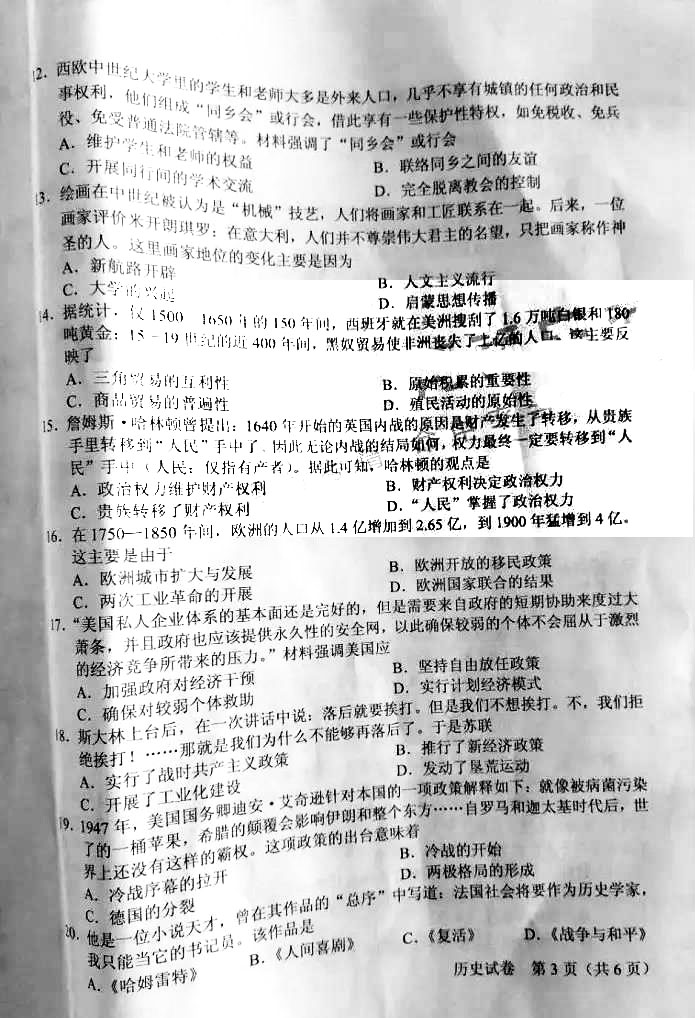 12. 西欧中世纪大学里的学生和老师大多是外来人口，几乎不享有城镇的任何政治和民
事权利，他们组成“同乡会”或行会，借此享有一些保护性特权，如免税收、免兵
役、免受普通法院管辖等。材料强调了“同乡会”或行会
A．维护学生和老师的权益
B．联络同乡之间的友谊
C．开展同行间的学术交流
D．完全脱离教会的控制
13. 绘画在中世纪被认为是“机械”技艺，人们将画家和工匠联系在一起。后来，一位
画家评价米开朗琪罗：在意大利，人们并不尊崇伟大君主的名望，只把画家称作神
圣的人。这里画家地位的变化主要是因为
A．新航路开辟
B．人文主义流行
C．大学的兴起
D．启蒙思想传播
14. 据统计，仅1500—1650年的150年间，西班牙就在美洲搜刮了1.6万吨白银和180
吨黄金；15－19世纪的近400年间，黑奴贸易使非洲丧失了上亿的人口。这主要反
映了
A．三角贸易的互利性
B．原始积累的重要性
C．商品贸易的普遍性
D．殖民活动的原始性
15. 詹姆斯·哈林顿曾提出：1640年开始的英国内战的原因是财产发生了转移，从贵族
手里转移到“人民”手中了，因此无论内战的结局如何，权力最终一定要转移到“人
民”手中（人民：仅指有产者）。据此可知，哈林顿的观点是
A．政治权力维护财产权利
B．财产权利决定政治权力
C．贵族转移了财产权利
D．“人民”掌握了政治权力
16. 在1750—1850年间，欧洲的人口从1.4亿增加到2.65亿，到1900年猛增到4亿。
这主要是由于
A．欧洲城市扩大与发展
B．欧洲开放的移民政策
C．两次工业革命的开展
D．欧洲国家联合的结果
17. “美国私人企业体系的基本面还是完好的，但是需要来自政府的短期协助来度过大
萧条，并且政府也应该提供永久性的安全网，以此确保较弱的个体不会屈从于激烈
的经济竞争所带来的压力。”材料强调美国应
A．加强政府对经济干预
B．坚持自由放任政策
C．确保对较弱个体救助
D．实行计划经济模式
18. 斯大林上台后，在一次讲话中说：落后就要挨打。但是我们不想挨打。不，我们拒
绝挨打！……那就是我们为什么不能够再落后了。于是苏联
A．实行了战时共产主义政策
B．推行了新经济政策
C．开展了工业化建设
D．发动了垦荒运动
19. 1947年，美国国务卿迪安·艾奇逊针对本国的一项政策解释如下：就像被病菌污染
了的一桶苹果，希腊的颠覆会影响伊朗和整个东方……自罗马和迦太基时代后，世
界上还没有这样的霸权。这项政策的出台意味着
A．冷战序幕的拉开
B．冷战的开始
C．德国的分裂
D．两极格局的形成
20. 他是一位小说天才，曾在其作品的“总序”中写道：法国社会将要作为历史学家，
我只能当它的书记员。该作品是
A．《哈姆雷特》
B．《人间喜剧》
C．《复活》
D．《战争与和平》
历史试卷 第3页（共6页）